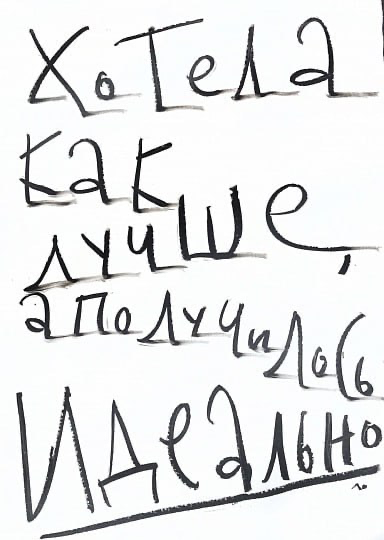 Хотела
как
лучше,
а получилось
Идеально